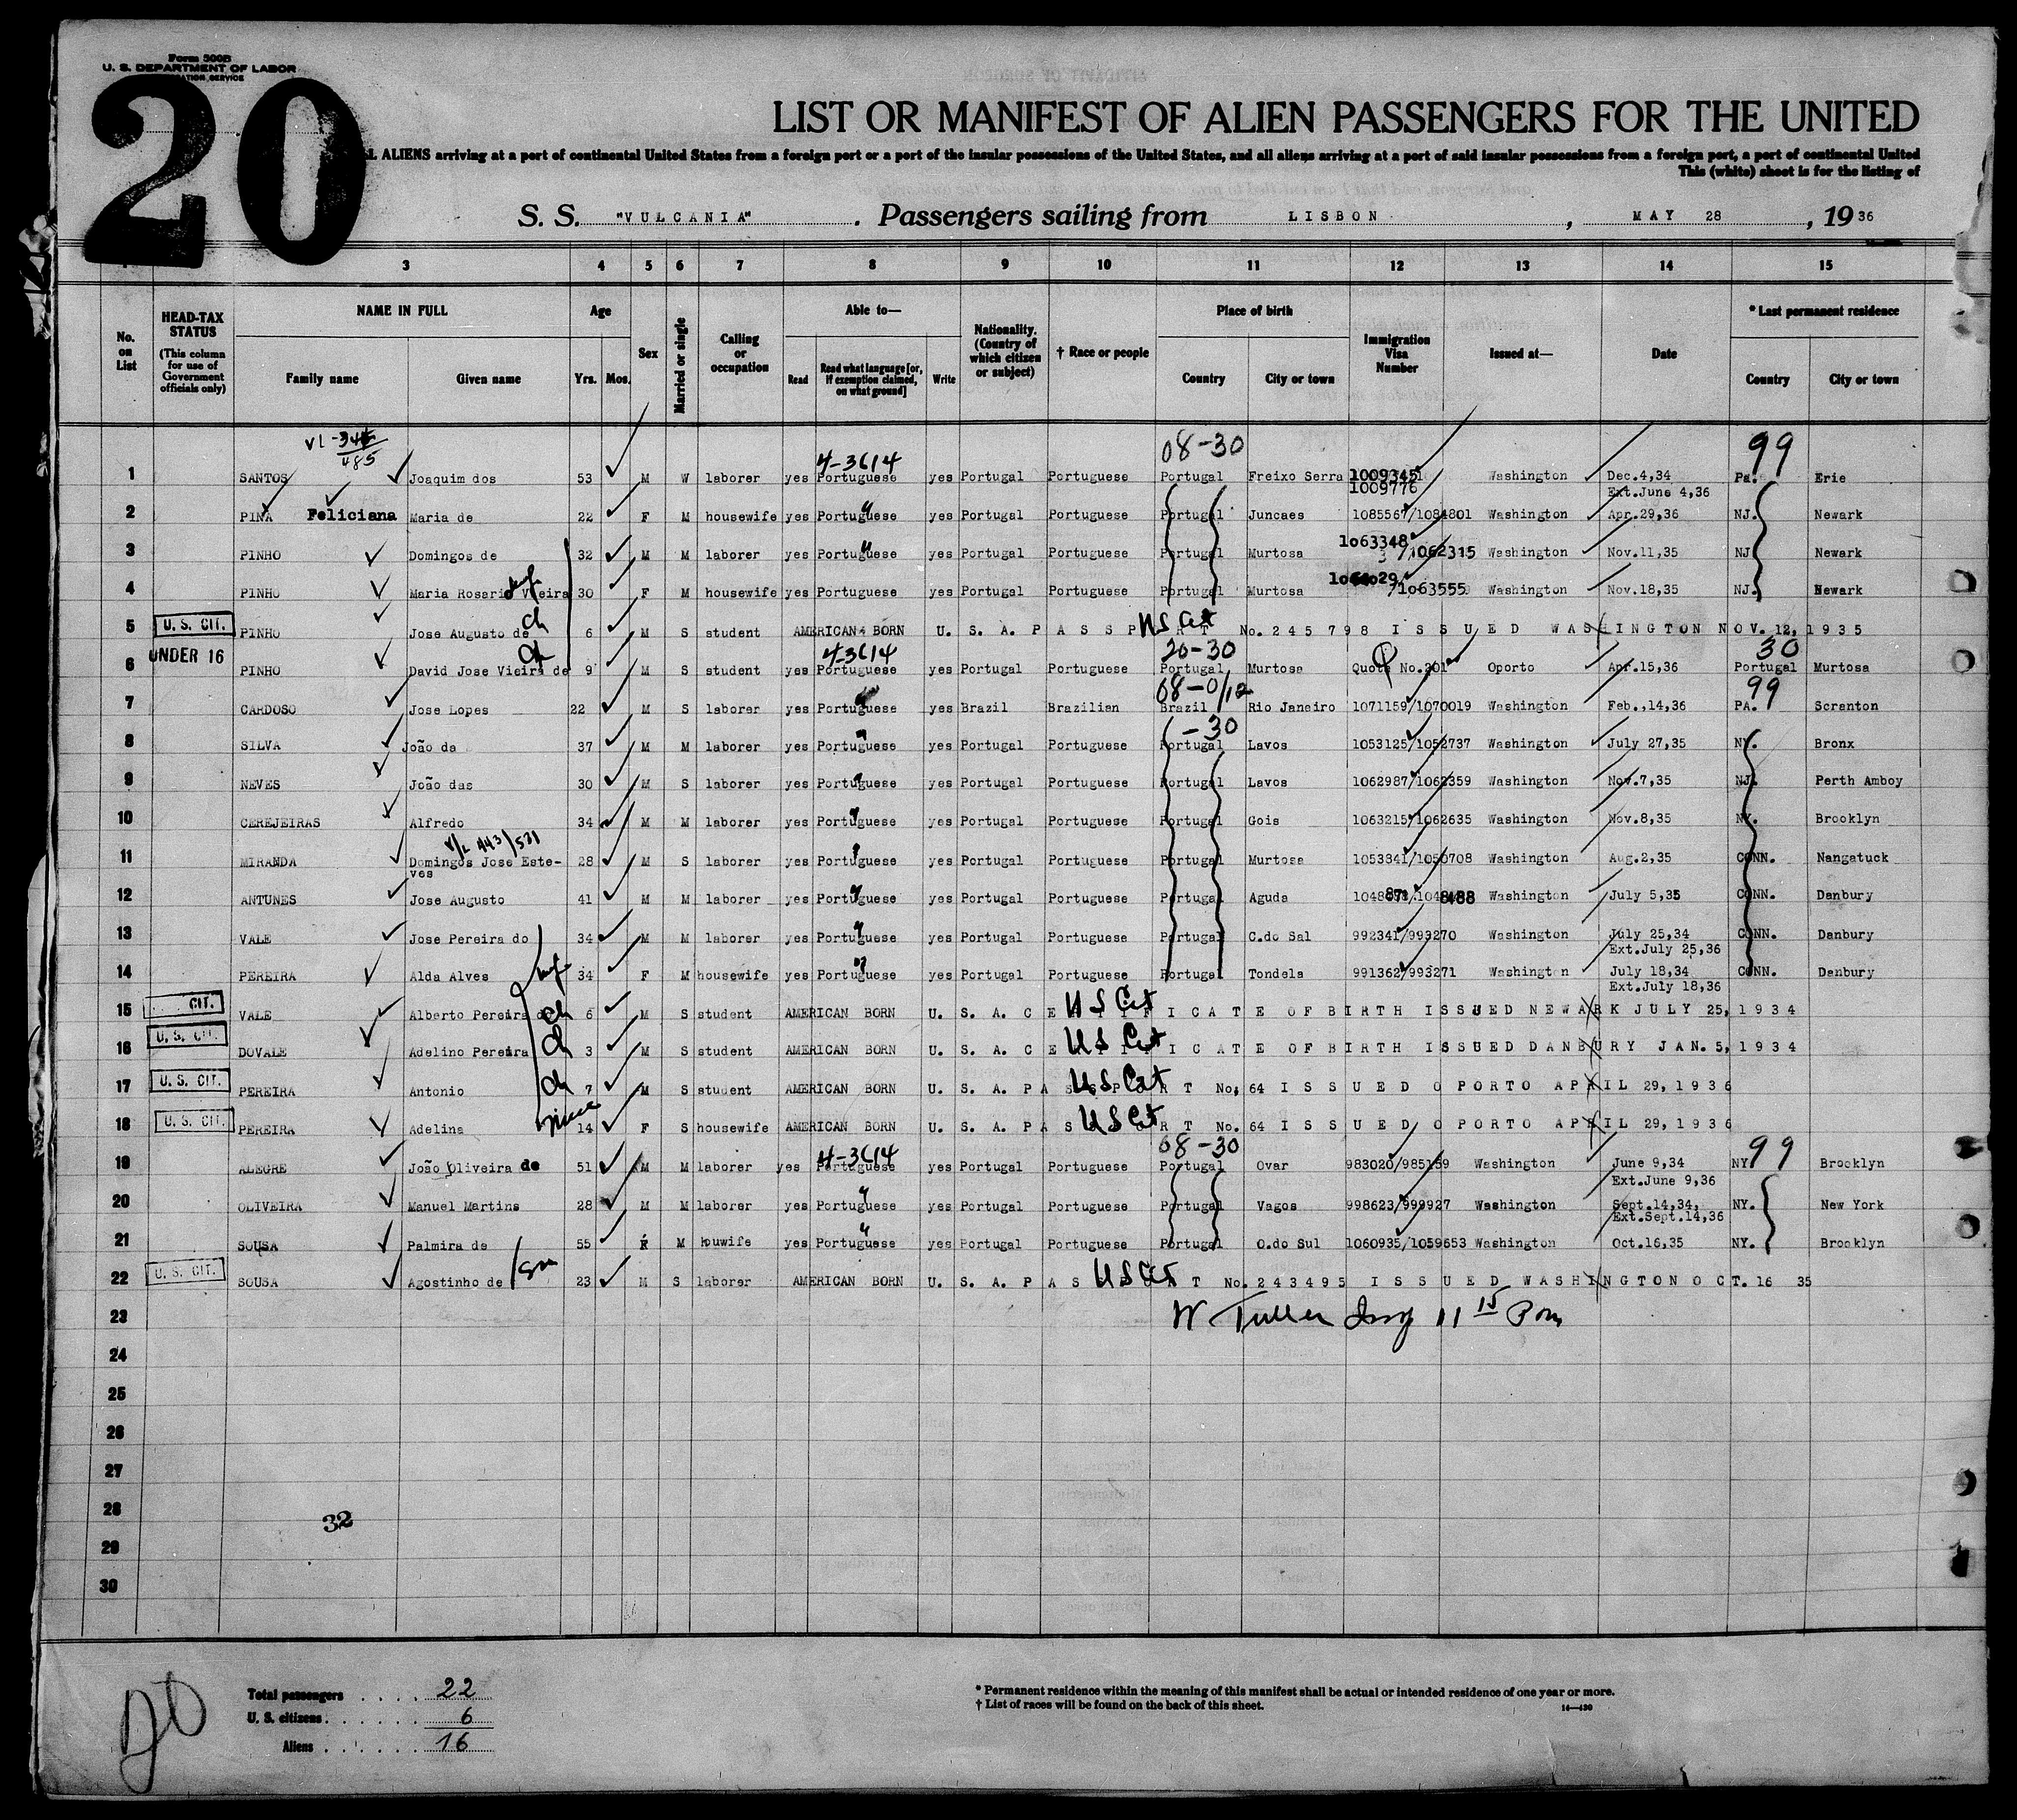 Form 500B
U. S. DEPARTMENT OF LABOR
20
LIST OR MANIFEST OF ALIEN PASSENGERS FOR THE UNITED
ALIENS arriving at a port of continental United States from a foreign port or a port of the insular possessions of the United States, and all aliens arriving at a port of said insular possessions from a foreign port, a port of continental United
This (white) sheet is for the listing of
S. S. "VULCANIA". Passengers sailing from LISBON, MAY 28, 1936
3 4 5 6 7 8 9 10 11 12 13 14 15
No. on List HEAD-TAX STATUS (This column for use of Government officials only) NAME IN FULL Family name Given name Age Yrs. Mos. Sex Married or single Calling or occupation Able to— Read Read what language [or, if exemption claimed, on what ground] Write Nationality. (Country of which citizen or subject) † Race or people Place of birth Country City or town Immigration Visa Number Issued at— Date * Last permanent residence Country City or town
VL-345 485 4-3614 08-30 99
1 SANTOS Joaquim dos 53 M W laborer yes Portuguese yes Portugal Portuguese Portugal Freixo Serra 1009345 Washington Dec.4,34 Pa. Erie
1009776 Ext.June 4,36
2 PINA Feliciana Maria de 22 F M housewife yes Portuguese yes Portugal Portuguese Portugal Juncaes 1085567/1084801 Washington Apr.29,36 NJ. Newark
1063348
3 PINHO Domingos de 32 M M laborer yes Portuguese yes Portugal Portuguese Portugal Murtosa /1062315 Washington Nov.11,35 NJ Newark
4 PINHO Maria Rosario Vieira wf 30 F M housewife yes Portuguese yes Portugal Portuguese Portugal Murtosa /1063555 Washington Nov.18,35 NJ. Newark
5 U. S. CIT. PINHO Jose Augusto de ch 6 M S student AMERICAN BORN U. S. A. PASSPORT US Cit No. 245798 ISSUED WASHINGTON NOV. 12, 1935
UNDER 16 4-3614 20-30 30
6 PINHO David Jose Vieira de ch 9 M S student yes Portuguese yes Portugal Portuguese Portugal Murtosa Quota No.201 Oporto Apr.15,36 Portugal Murtosa
08-0/12 99
7 CARDOSO Jose Lopes 22 M S laborer yes Portuguese yes Brazil Brazilian Brazil Rio Janeiro 1071159/1070019 Washington Feb.,14,36 PA. Scranton
-30
8 SILVA João da 37 M M laborer yes Portuguese yes Portugal Portuguese Portugal Lavos 1053125/1052737 Washington July 27,35 NY. Bronx
9 NEVES João das 30 M S laborer yes Portuguese yes Portugal Portuguese Portugal Lavos 1062987/1062359 Washington Nov.7,35 NJ. Perth Amboy
10 CEREJEIRAS Alfredo 34 M M laborer yes Portuguese yes Portugal Portuguese Portugal Gois 1063215/1062635 Washington Nov.8,35 NY. Brooklyn
V/L 443/531
11 MIRANDA Domingos Jose Este- 28 M S laborer yes Portuguese yes Portugal Portuguese Portugal Murtosa 1053341/1050708 Washington Aug.2,35 CONN. Nangatuck
ves
12 ANTUNES Jose Augusto 41 M M laborer yes Portuguese yes Portugal Portuguese Portugal Aguda Washington July 5,35 CONN. Danbury
13 VALE Jose Pereira do 34 M M laborer yes Portuguese yes Portugal Portuguese Portugal C.do Sal 992341/993270 Washington July 25,34 CONN. Danbury
Ext.July 25,36
14 PEREIRA Alda Alves wf 34 F M housewife yes Portuguese yes Portugal Portuguese Portugal Tondela 991362/993271 Washington July 18,34 CONN. Danbury
Ext.July 18,36
15 CIT. VALE Alberto Pereira do ch 6 M S student AMERICAN BORN U. S. A. CERTIFICATE US Cit OF BIRTH ISSUED NEWARK JULY 25, 1934
16 U. S. CIT. DOVALE Adelino Pereira ch 3 M S student AMERICAN BORN U. S. A. CERTIFICATE US Cit OF BIRTH ISSUED DANBURY JAN. 5, 1934
17 U. S. CIT. PEREIRA Antonio ch 7 M S student AMERICAN BORN U. S. A. PASSPORT US Cit No. 64 ISSUED OPORTO APRIL 29, 1936
18 U. S. CIT. PEREIRA Adelina niece 14 F S housewife AMERICAN BORN U. S. A. PASSPORT US Cit No. 64 ISSUED OPORTO APRIL 29, 1936
4-3614 08-30 99
19 ALEGRE João Oliveira de 51 M M laborer yes Portuguese yes Portugal Portuguese Portugal Ovar 983020/985159 Washington June 9,34 NY Brooklyn
Ext.June 9,36
20 OLIVEIRA Manuel Martins 28 M M laborer yes Portuguese yes Portugal Portuguese Portugal Vagos 998623/999927 Washington Sept.14,34, NY. New York
Ext.Sept.14,36
21 SOUSA Palmira de 55 F M houwife yes Portuguese yes Portugal Portuguese Portugal O.do Sul 1060935/1059653 Washington Oct.16,35 NY. Brooklyn
22 U. S. CIT. SOUSA Agostinho de son 23 M S laborer AMERICAN BORN U. S. A. PASSPORT US Cit No. 243495 ISSUED WASHINGTON OCT. 16 35
23 W Tuller Insp 11 15 Pm
24
25
26
27
28
32
29
30
20
Total passengers 22
U. S. citizens 6
Aliens 16
* Permanent residence within the meaning of this manifest shall be actual or intended residence of one year or more.
† List of races will be found on the back of this sheet.